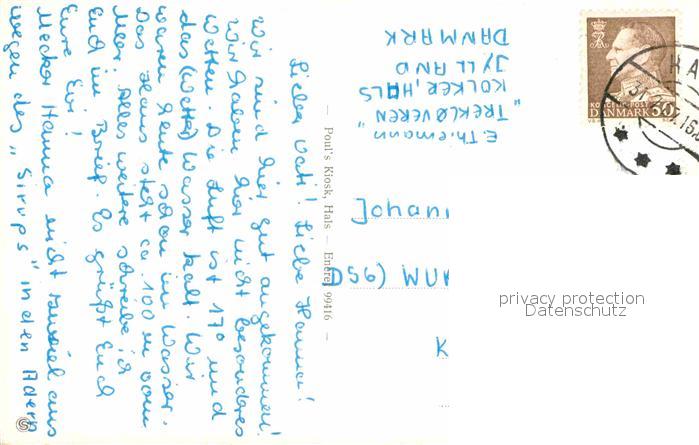 Lieber Vati! Liebe Hanna!
Wir sind hier gut angekommen!
Wir haben hier nicht besonderes
Wetter. Die Luft ist 17° und
das (Wetter) Wasser kalt. Wir
waren heute schon im Wasser.
Das Haus steht ca. 100 m vom
Meer. Alles weitere schreibe ich
Euch im Brief. Es grüßt Euch
Eure Evi!
Mecker Hanna nicht zuviel aus
wegen des "Sirups" in den Adern
— Poul's Kiosk, Hals — Eneret 99416 —
E. Thiemann
"TREKLØVEREN"
KOLKER, HALS
JYLLAND
DANMARK
KONGELIG POST
DANMARK 30
HA
Johan
DSG) WU
K
privacy protection
Datenschutz